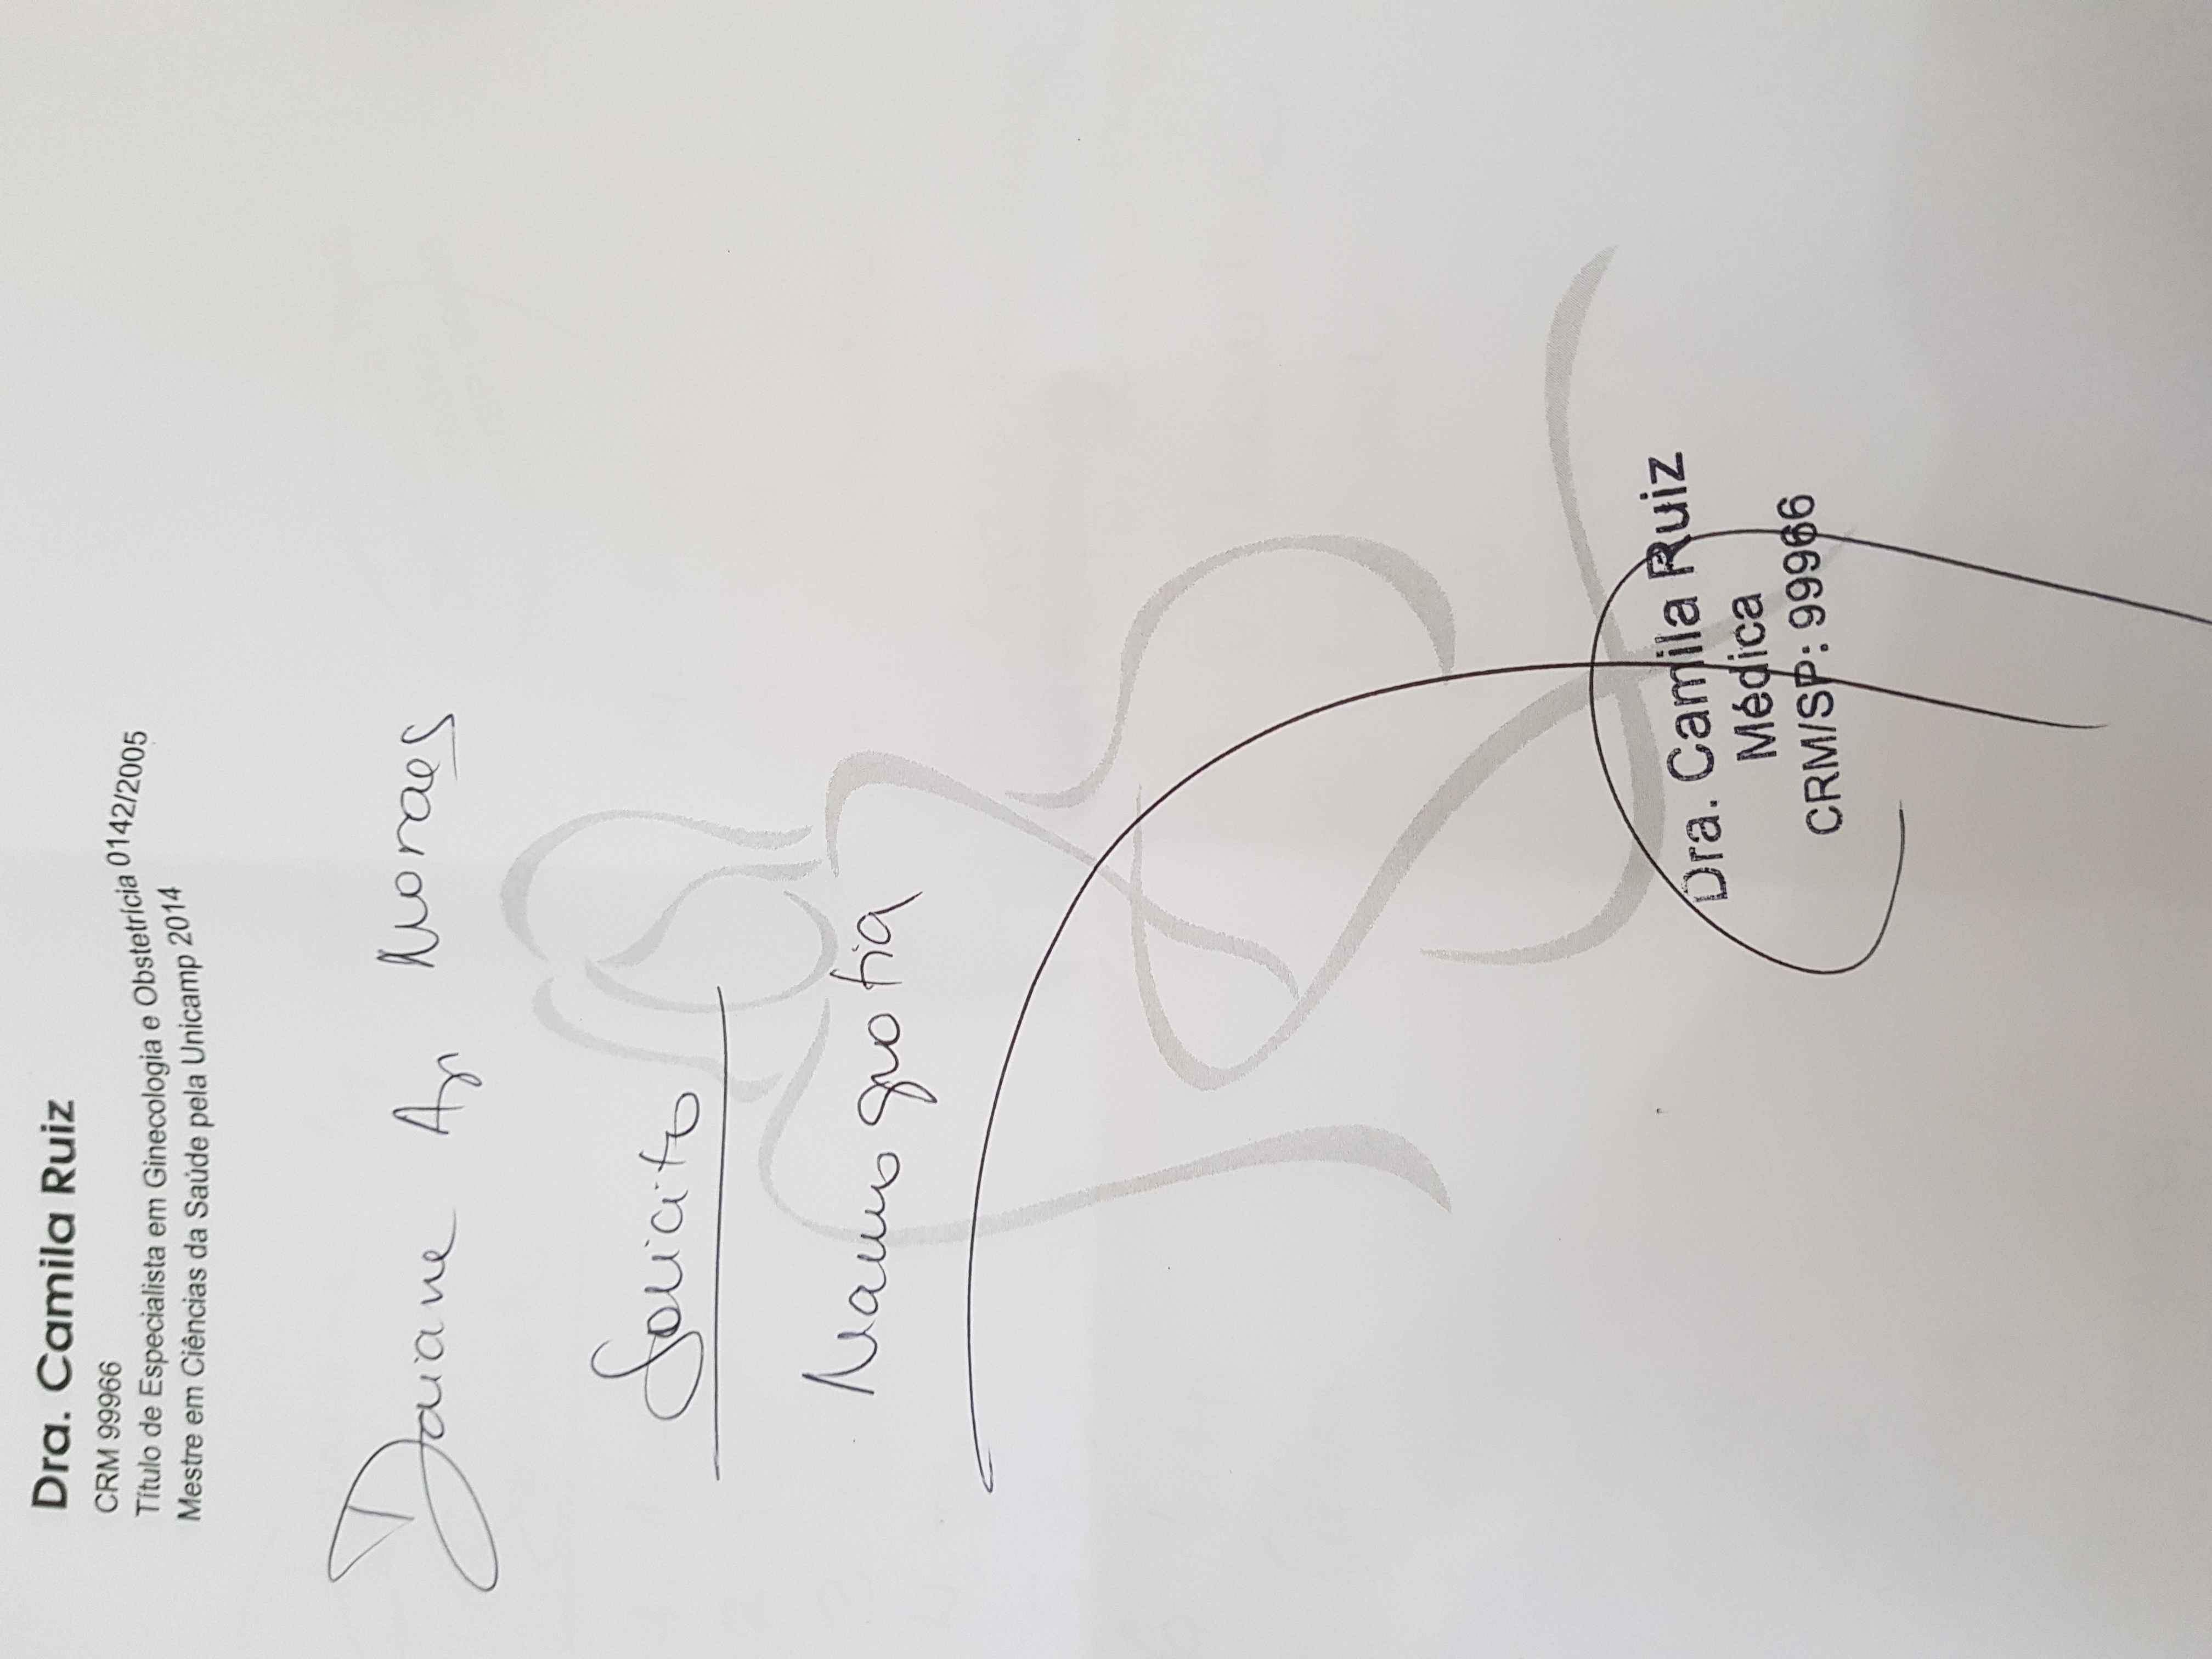 Dra. Camila Ruiz
CRM 99966
Título de Especialista em Ginecologia e Obstetrícia 0142/2005
Mestre em Ciências da Saúde pela Unicamp 2014
Daiane Ap Moraes
Solicito
Mamografia
Dra. Camila Ruiz
Médica
CRM/SP: 99966